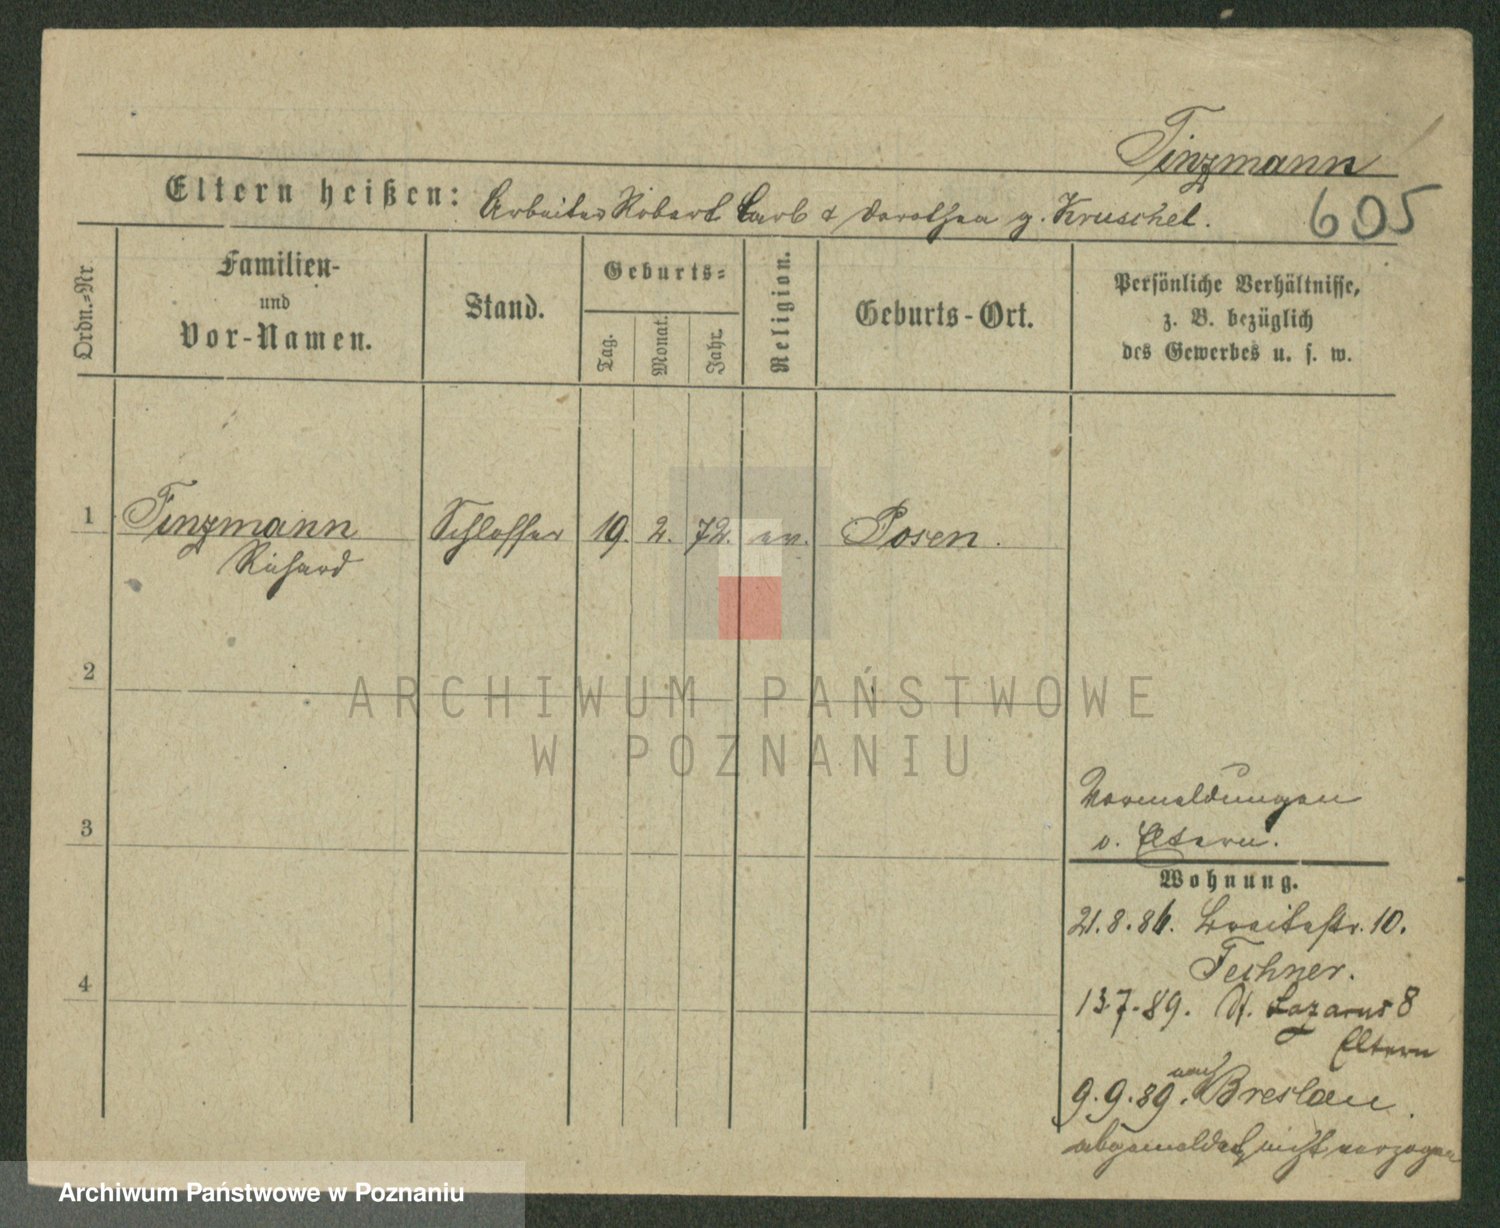 Tinzmann
Eltern heißen: Arbeiter Robert Carl & Dorothea g. Kruschel.
605
Ordn.=Nr
Familien-
und
Vor-Namen.
Stand.
Geburts=
Tag.
Monat.
Jahr.
Religion.
Geburts-Ort.
Persönliche Verhältnisse,
z. B. bezüglich
des Gewerbes u. s. w.
1 Tinzmann Schlosser 19. 2. 72. ev. Posen.
Richard
2
ARCHIWUM PAŃSTWOWE
W POZNANIU
3
Vormeldungen
v. Eltern.
Wohnung.
21.8.86. Breitestr. 10.
Techner.
4
13.7.89. St. Lazarus 8
Eltern
9.9.89. nach Breslau.
abgemeldet, nicht verzogen
Archiwum Państwowe w Poznaniu